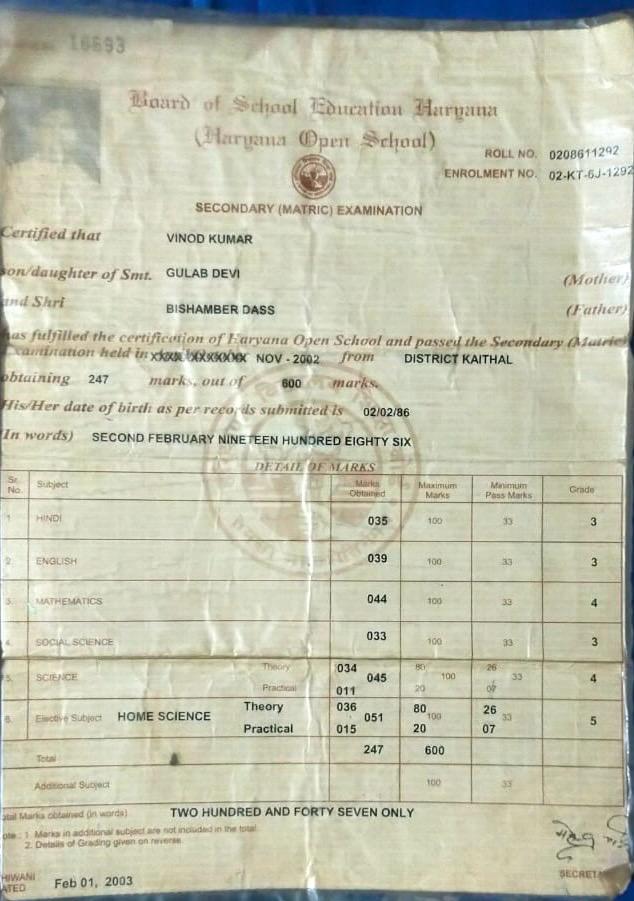 16693
Board of School Education Haryana
(Haryana Open School)
ROLL NO. 0208611292
ENROLMENT NO. 02-KT-6J-1292
SECONDARY (MATRIC) EXAMINATION
Certified that VINOD KUMAR
son/daughter of Smt. GULAB DEVI (Mother)
and Shri BISHAMBER DASS (Father)
has fulfilled the certification of Haryana Open School and passed the Secondary (Matric)
Examination held in NOV - 2002 from DISTRICT KAITHAL
obtaining 247 marks, out of 600 marks.
His/Her date of birth as per records submitted is 02/02/86
(In words) SECOND FEBRUARY NINETEEN HUNDRED EIGHTY SIX
DETAIL OF MARKS
Sr. No. Subject Marks Obtained Maximum Marks Minimum Pass Marks Grade
1 HINDI 035 100 33 3
2. ENGLISH 039 100 33 3
3. MATHEMATICS 044 100 33 4
4. SOCIAL SCIENCE 033 100 33 3
5. SCIENCE Theory 034 045 80 100 26 33 4
Practical 011 20 07
6. Elective Subject HOME SCIENCE Theory 036 051 80 100 26 33 5
Practical 015 20 07
Total 247 600
Additional Subject 100 33
otal Marks obtained (in words) TWO HUNDRED AND FORTY SEVEN ONLY
ote : 1. Marks in additional subject are not included in the total.
2. Details of Grading given on reverse.
HIWANI
ATED Feb 01, 2003
SECRETA